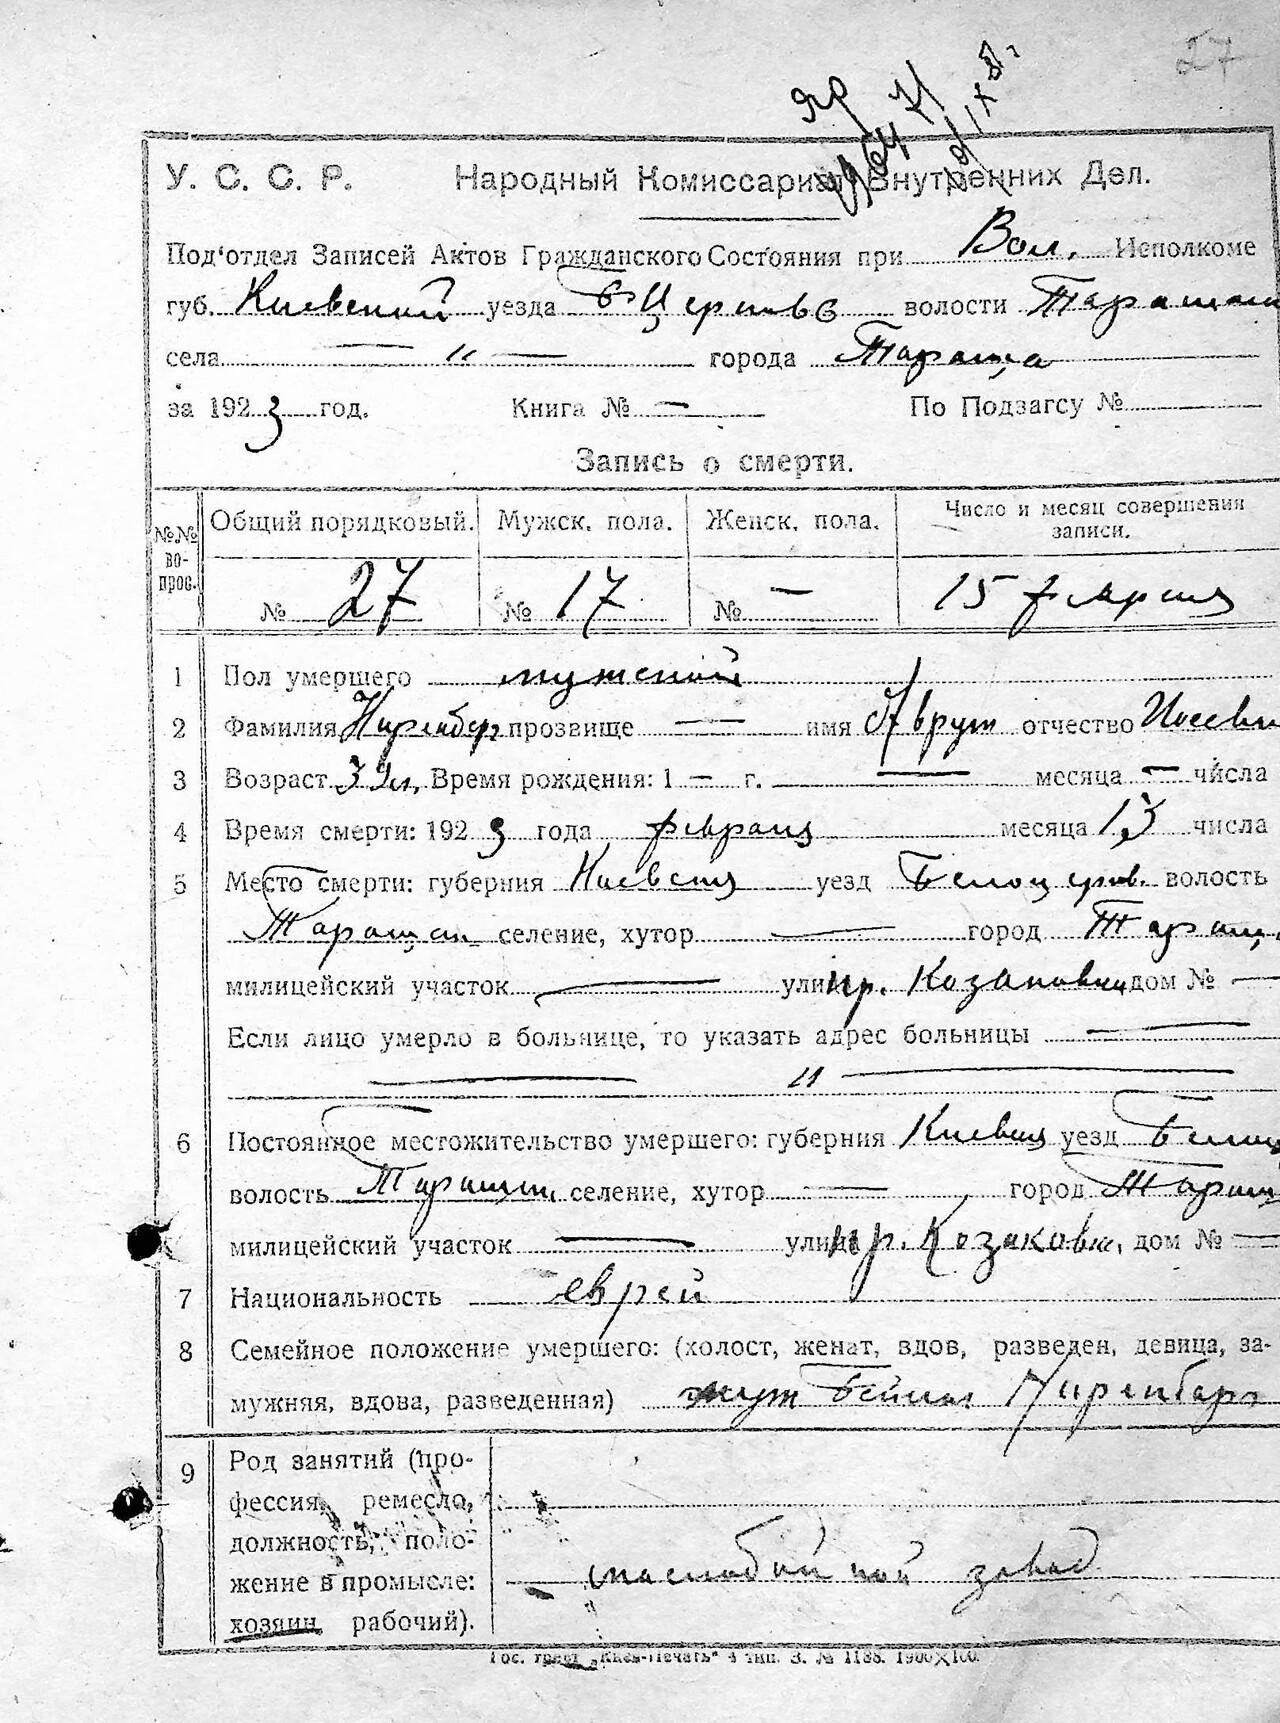 27
У. С. С. Р. Народный Комиссариат Внутренних Дел.
Под‘отдел Записей Актов Гражданского Состояния при Вол. Исполкоме
губ. Киевской уезда Б Церков волости Таращан
села — " — города Тараща
за 1923 год. Книга № — По Подзагсу №
Запись о смерти.
№№ вопрос. Общий порядковый. Мужск. пола. Женск. пола. Число и месяц совершения записи.
№ 27 № 17 № — 15 февраля
1 Пол умершего мужской
2 Фамилия Ниренберг прозвище — имя Аврум отчество
3 Возраст Время рождения: 1 — г. — месяца — числа
4 Время смерти: 1923 года февраля месяца 13 числа
5 Место смерти: губерния Киевская уезд Белоцерков. волость
Таращан. селение, хутор — город Тараща
милицейский участок — улица пр. дом № —
Если лицо умерло в больнице, то указать адрес больницы —
— " —
6 Постоянное местожительство умершего: губерния Киевская уезд Белоц
волость Таращан. селение, хутор — город Таращ
милицейский участок — улица пр. дом № —
7 Национальность еврей
8 Семейное положение умершего: (холост, женат, вдов, разведен, девица, за-
мужняя, вдова, разведенная) муж Бейлы Ниренберг
9 Род занятий (про-
фессия, ремесло,
должность, поло-
жение в промысле: маслобойный завод
хозяин, рабочий).
Гос. трест „Киев-Печать“ 4 тип. З. № 1188. 1900×100.